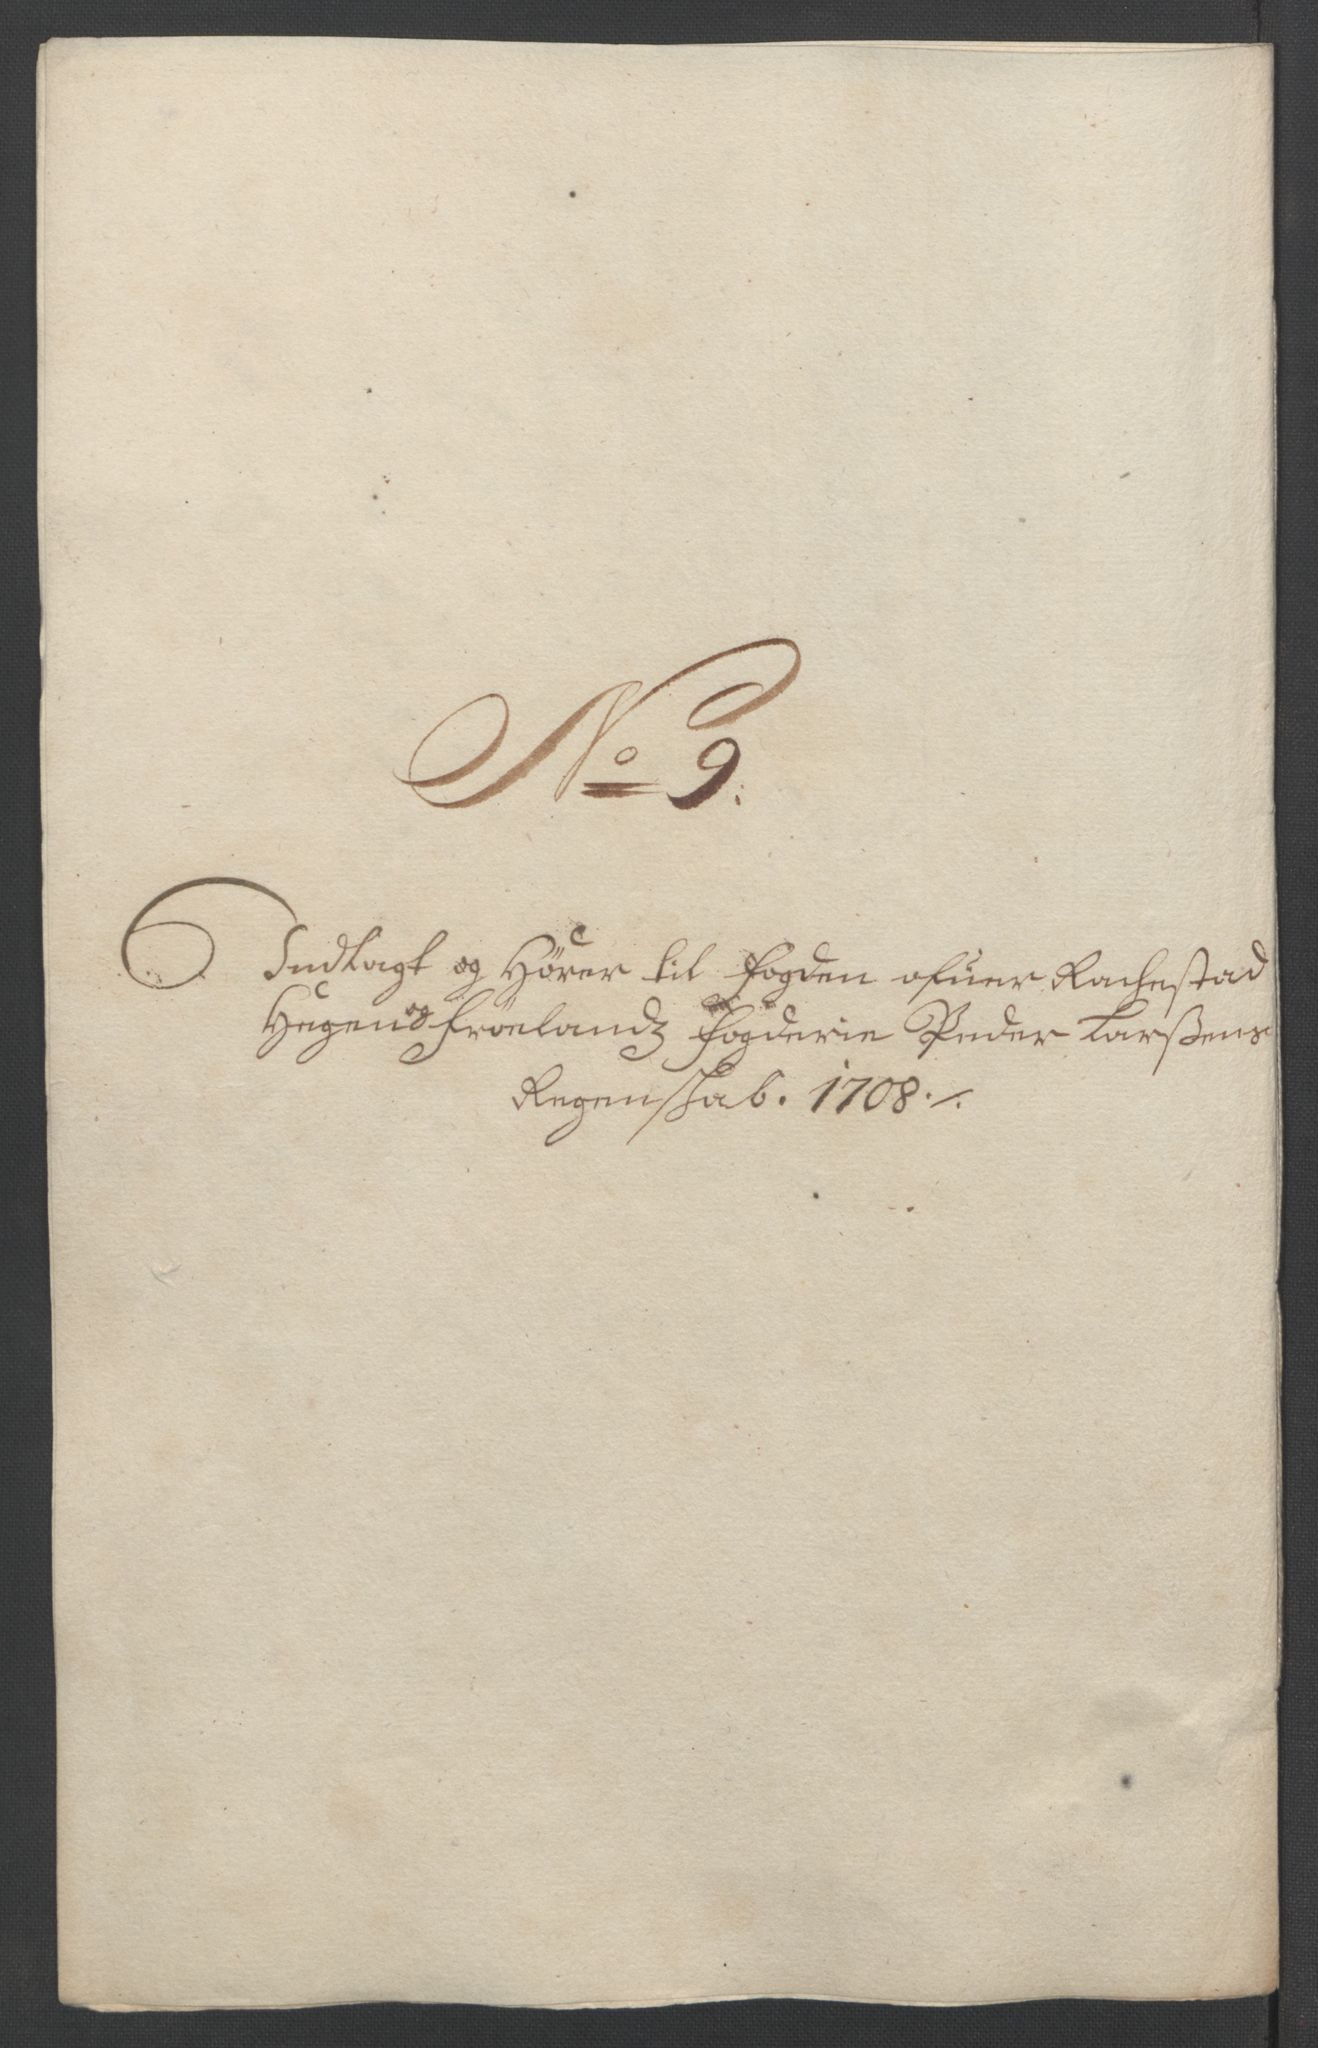 No 9.
Indlagt og Hører til Fogden ofuer Rachestad
Heggen og Frøelandz Fogderie Peder Larßens
Regenskab. 1708 ./.